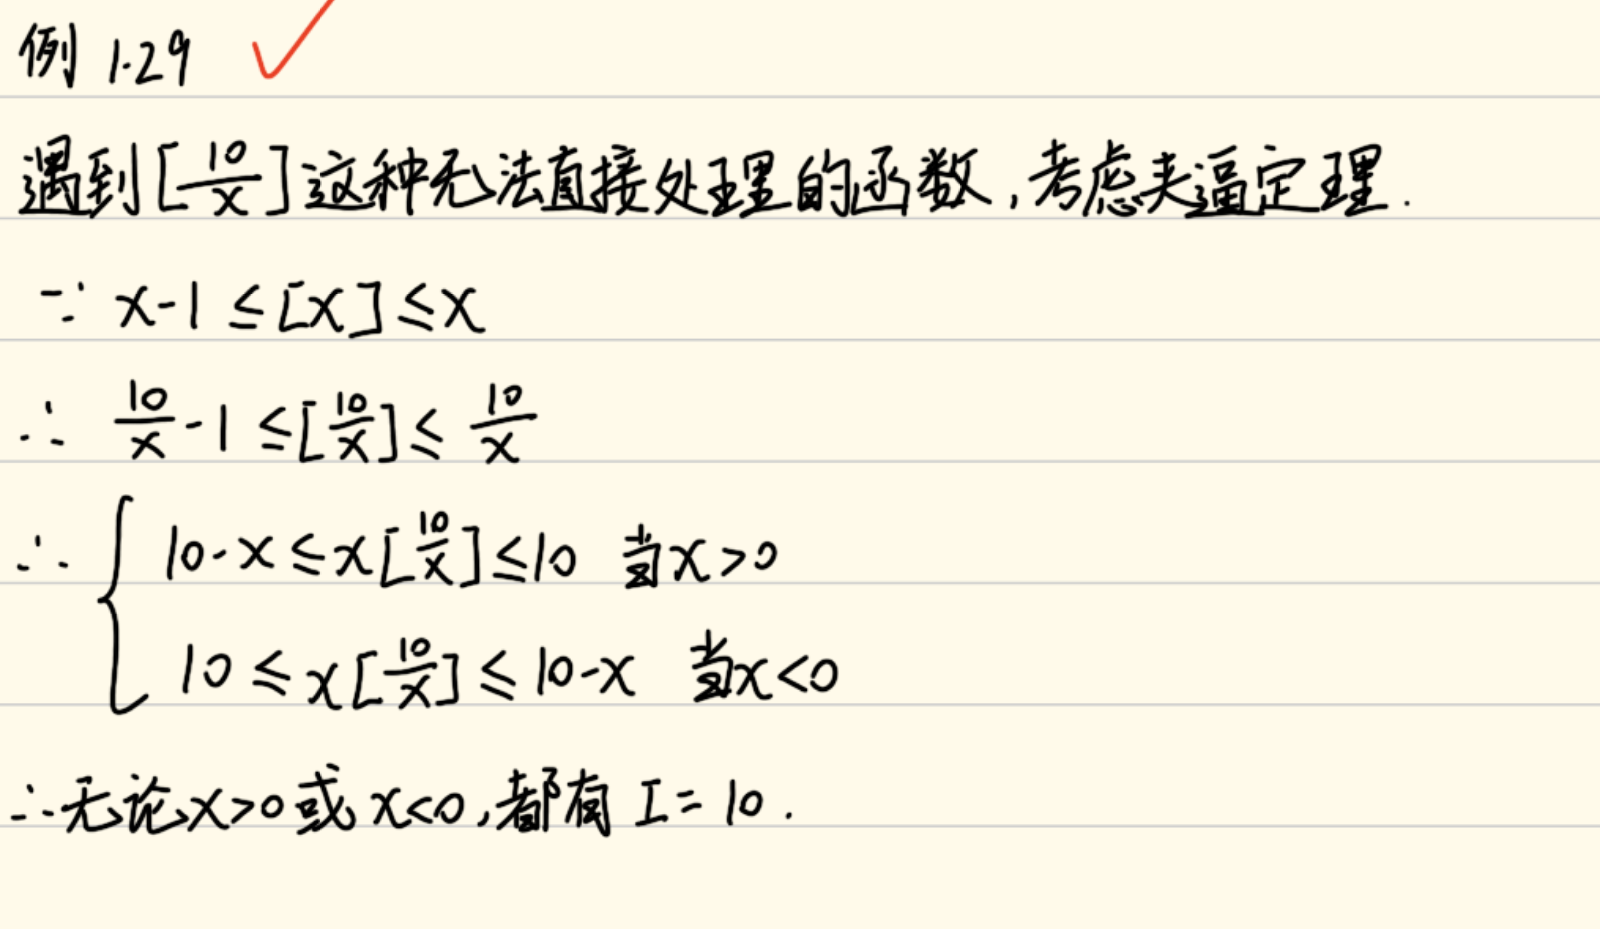 例 1.29
遇到[10/x]这种无法直接处理的函数,考虑夹逼定理.
∵ x-1 ≤ [x] ≤ x
∴ 10/x - 1 ≤ [10/x] ≤ 10/x
∴ { 10-x ≤ x[10/x] ≤ 10 当x>0
10 ≤ x[10/x] ≤ 10-x 当x<0
∴无论x>0或x<0,都有 I = 10.